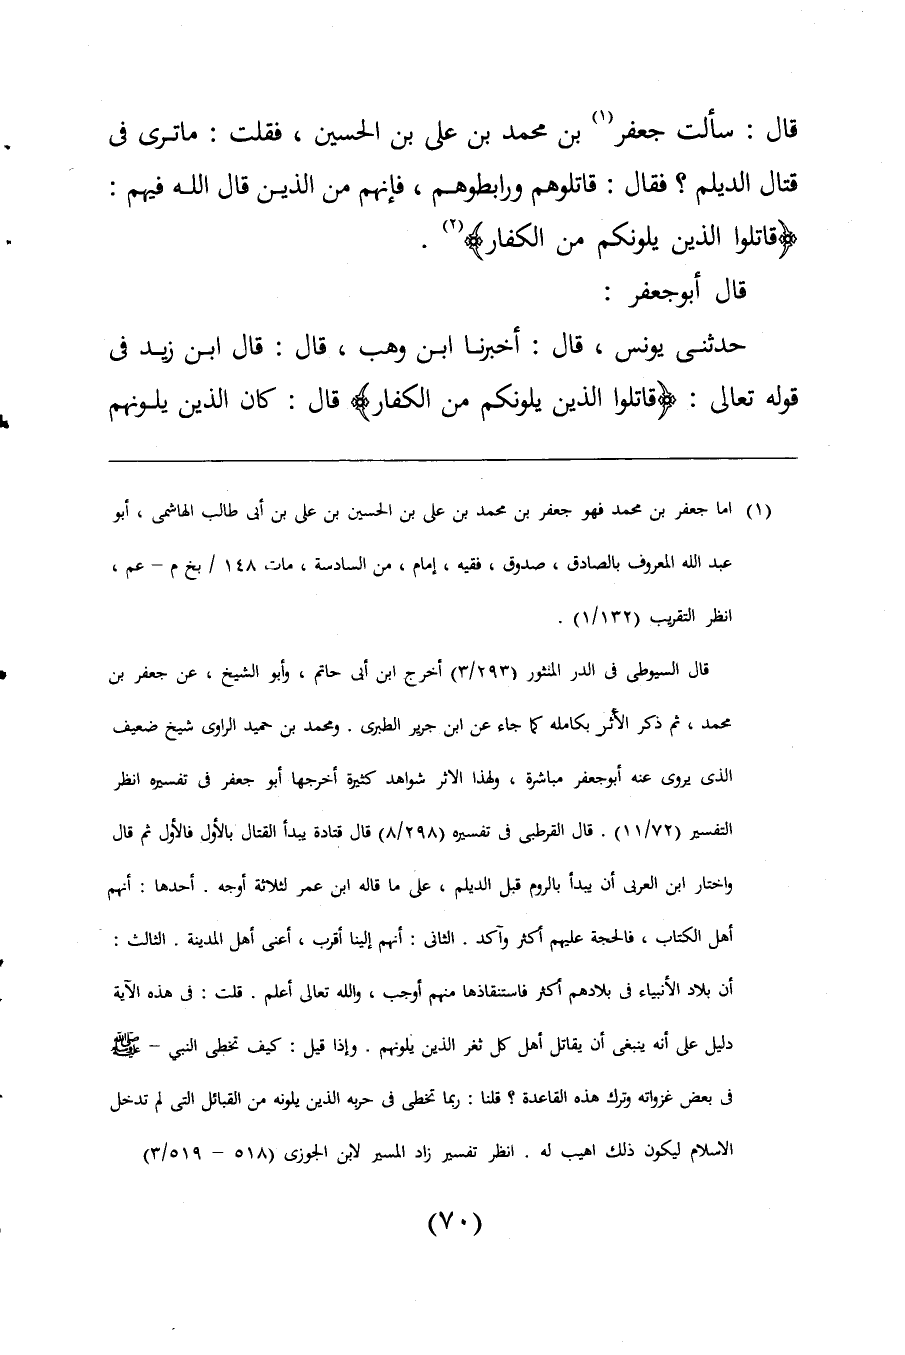 قال : سألت جعفر(١) بن محمد بن على بن الحسين ، فقلت : ماترى فى
قتال الديلم ؟ فقال : قاتلوهم ورابطوهم ، فإنهم من الذين قال الله فيهم :
﴿قاتلوا الذين يلونكم من الكفار﴾(٢) .
قال أبوجعفر :
حدثنى يونس ، قال : أخبرنا ابن وهب ، قال : قال ابن زيد فى
قوله تعالى : ﴿قاتلوا الذين يلونكم من الكفار﴾ قال : كان الذين يلونهم
(١) اما جعفر بن محمد فهو جعفر بن محمد بن على بن الحسين بن على بن أبى طالب الهاشمى ، أبو
عبد الله المعروف بالصادق ، صدوق ، فقيه ، إمام ، من السادسة ، مات ١٤٨ / بخ م – عم ،
انظر التقريب (١/١٣٢) .
قال السيوطى فى الدر المنثور (٣/٢٩٣) أخرج ابن أبى حاتم ، وأبو الشيخ ، عن جعفر بن
محمد ، ثم ذكر الأثر بكامله كما جاء عن ابن جرير الطبرى . ومحمد بن حميد الراوى شيخ ضعيف
الذى يروى عنه أبوجعفر مباشرة ، ولهذا الاثر شواهد كثيرة أخرجها أبو جعفر فى تفسيره انظر
التفسير (١١/٧٢) . قال القرطبى فى تفسيره (٨/٢٩٨) قال قتادة يبدأ القتال بالأول فالأول ثم قال
واختار ابن العربى أن يبدأ بالروم قبل الديلم ، على ما قاله ابن عمر لثلاثة أوجه . أحدها : أنهم
أهل الكتاب ، فالحجة عليهم أكثر وآكد . الثانى : أنهم إلينا أقرب ، أعنى أهل المدينة . الثالث :
أن بلاد الأنبياء فى بلادهم أكثر فاستنقاذها منهم أوجب ، والله تعالى أعلم . قلت : فى هذه الآية
دليل على أنه ينبغى أن يقاتل أهل كل ثغر الذين يلونهم . وإذا قيل : كيف تخطى النبي – ﷺ
فى بعض غزواته وترك هذه القاعدة ؟ قلنا : ربما تخطى فى حربه الذين يلونه من القبائل التى لم تدخل
الاسلام ليكون ذلك اهيب له . انظر تفسير زاد المسير لابن الجوزى (٥١٨ – ٣/٥١٩)
(٧٠)